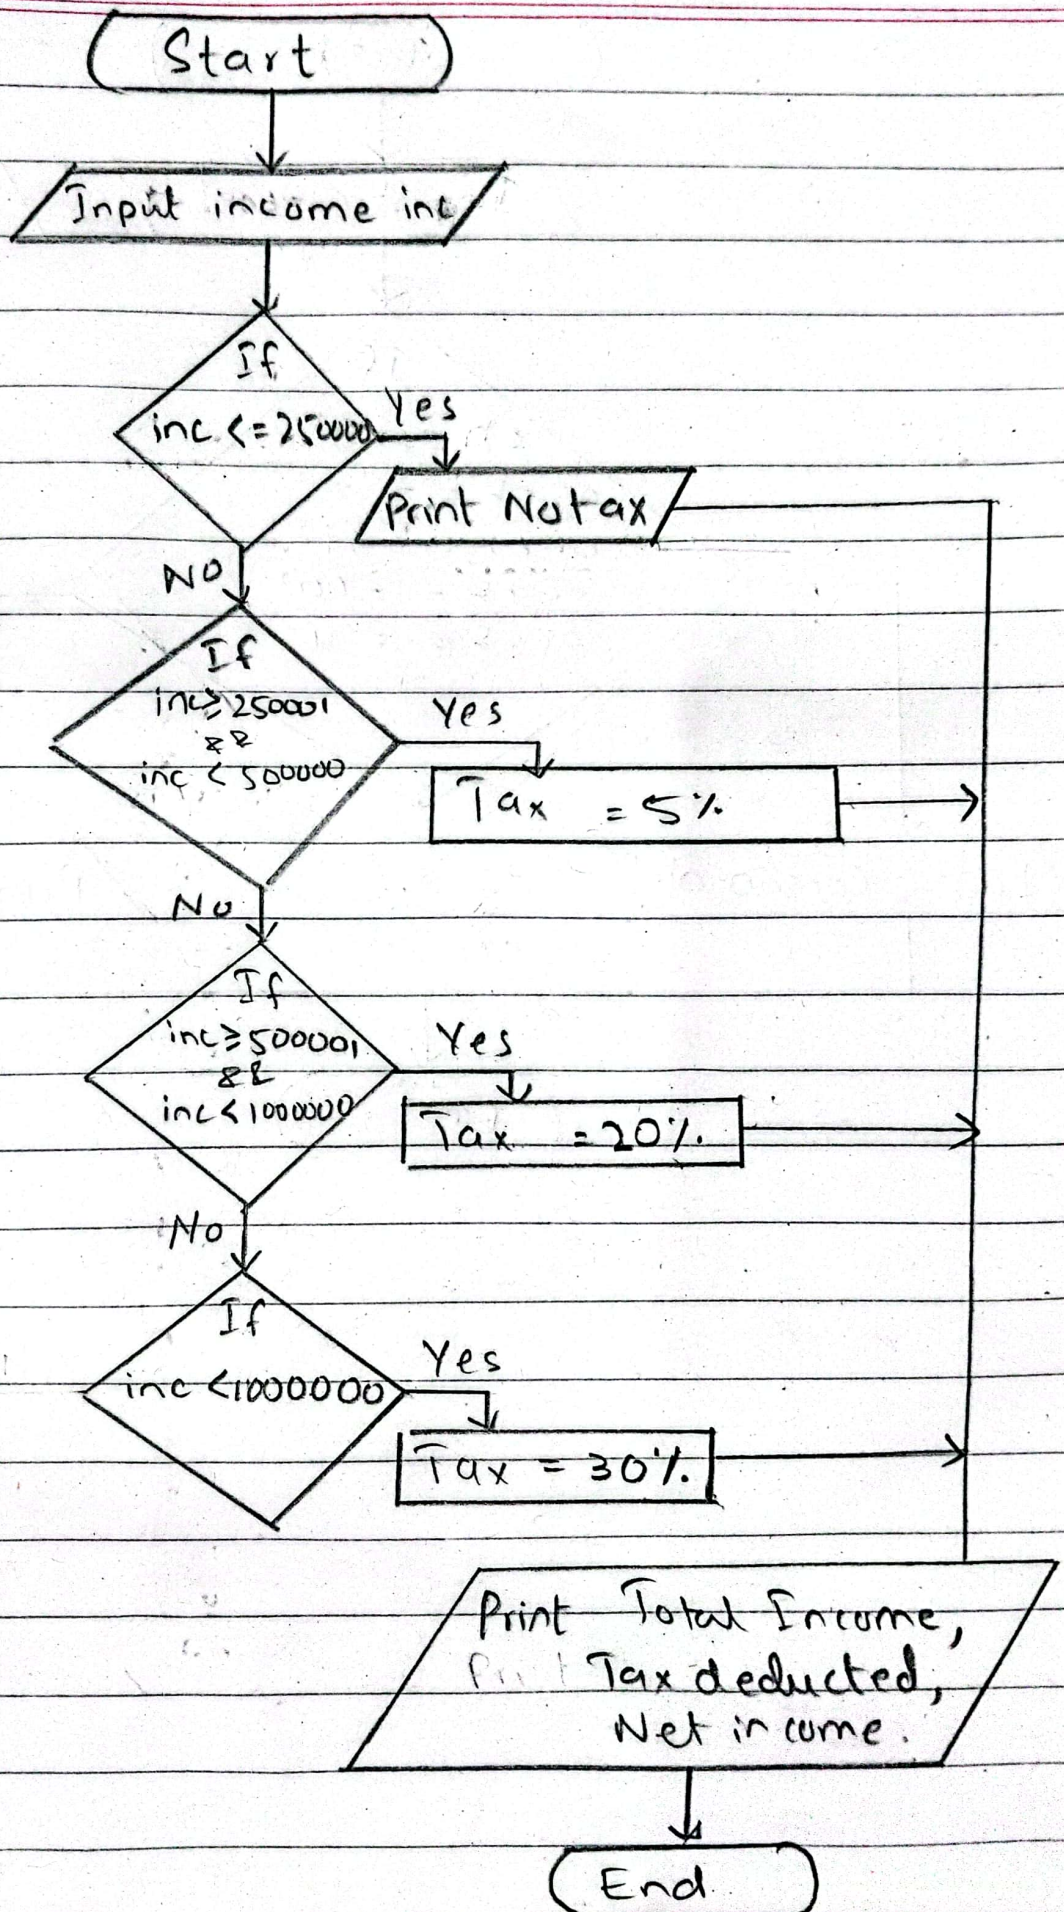 Start
Input income inc
If
inc <= 250000
Yes
Print No tax
No
If
inc ≥ 250001
&&
inc < 500000
Yes
Tax = 5%
No
If
inc ≥ 500001
&&
inc < 1000000
Yes
Tax = 20%.
No
If
inc < 1000000
Yes
Tax = 30%.
Print Total Income,
Tax deducted,
Net income.
End